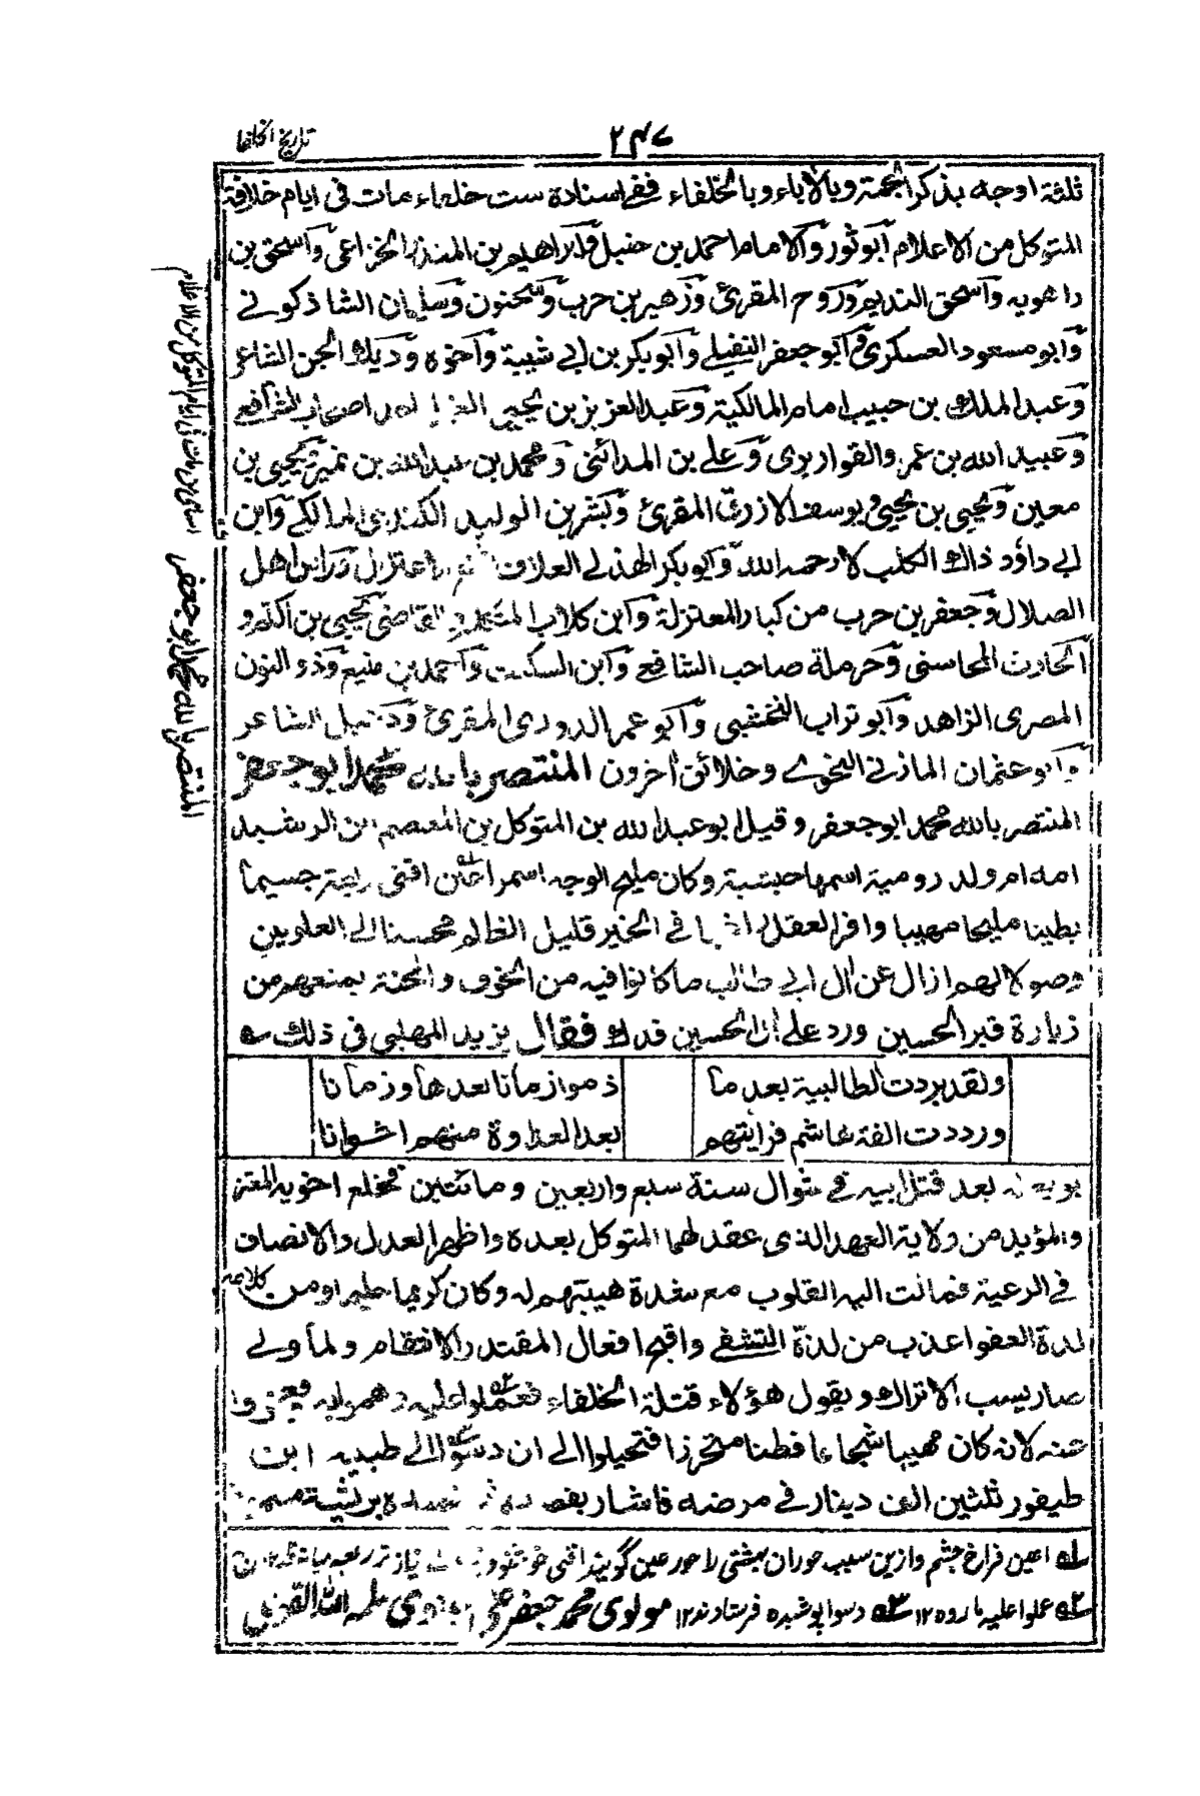 تاریخ الخلفا
۲۴۷
ثلثة اوجه بذكر الجمة وبالاباء وبالخلفاء ففي اسناده ست خلفاء مات فى ايام خلافة
المتوكل من الاعلام ابو ثور والامام احمد بن حنبل وابراهيم بن المنذر الخزاعى واسحق بن
راهويه واسحق النديم وروح المقرئ وزهير بن حرب وسحنون وسليمان الشاذكونے
وابو مسعود العسكرى وابو جعفر النفيلے وابو بكر بن ابے شيبة واخوه وديك الجن الشاعر
وعبد الملك بن حبيب امام المالكية وعبد العزيز بن يحيى اصحاب الشافعے
وعبيد الله بن عمر والقواريرى وعلے بن المدائنى ومحمد بن عبد الله بن نمير ويحيى بن
معين ويحيى بن يحيى ويوسف الازرق المقرئ وبشر بن الوليد الكندى المالكے وابن
ابے داؤد ذاك الكلب لا رحمه الله وابو بكر الهذلے العلاف اعتزال وراس اهل
الضلال وجعفر بن حرب من كبار المعتزلة وابن كلاب المتكلم والقاضى يحيى بن اكثم و
الحارث المحاسبى وحرملة صاحب الشافعے وابن السكيت واحمد بن منيع وذو النون
المصرى الزاهد وابو تراب النخشبى وابو عمر الدورى المقرئ ودعبل الشاعر
وابو عثمان المازنے النحوے وخلائق اخرون المنتصر بالله محمد ابو جعفر
المنتصر بالله محمد ابو جعفر وقيل ابو عبد الله بن المتوكل بن المعتصم بن الرشيد
امه ام ولد رومية اسمها حبشية وكان مليح الوجه اسمر اعين اقنى ربعة جسيما
بطينا مليحا مهيبا وافر العقل راغبا في الخير قليل الظلم محسنا الے العلويين
وصولا لهم ازال عن ال ابے طالب ما كانوا فيه من الخوف والمحنة بمنعهم من
زيارة قبر الحسين ورد علے ال الحسين فدك فقال يزيد المهلبى فى ذلك ے
ولقد بردت الطالبية بعد ما
ذموا زمانا بعدها وزمانا
ورددت الفة هاشم فرايتهم
بعد العداوة منهم اخوانا
بويع له بعد قتل ابيه في شوال سنة سبع واربعين ومائتين فخلع اخويه المعتز
والمؤيد من ولاية العهد الذى عقد لهما المتوكل بعده واظهر العدل والانصاف
في الرعية فمالت اليه القلوب مع شدة هيبتهم له وكان كريما حليما ومن كلامه
لذة العفو اعذب من لذة التشفے واقبح افعال المقتدر الانتقام ولما ولے
صار يسب الاتراك ويقول هؤلاء قتلة الخلفاء فعملوا عليه وهموا به فعجزوا
عنه لانه كان مهيبا شجاعا فطنا متحرزا فتحيلوا الے ان دسوا الے طبيبه ابن
طيفور ثلثين الف دينار في مرضه فاشار بفصده بريشة مسمومة
اسامى من مات فى ايام المتوكل من الاعلام
المنتصر بالله محمد ابو جعفر
۱ اعين فراخ چشم وازين سبب حوران بهشتى را حور عين گويند اقنى
۲ عملوا عليه ۱۲ ۳ دسوا پوشيده فرستادند ۱۲ مولوى محمد جعفر